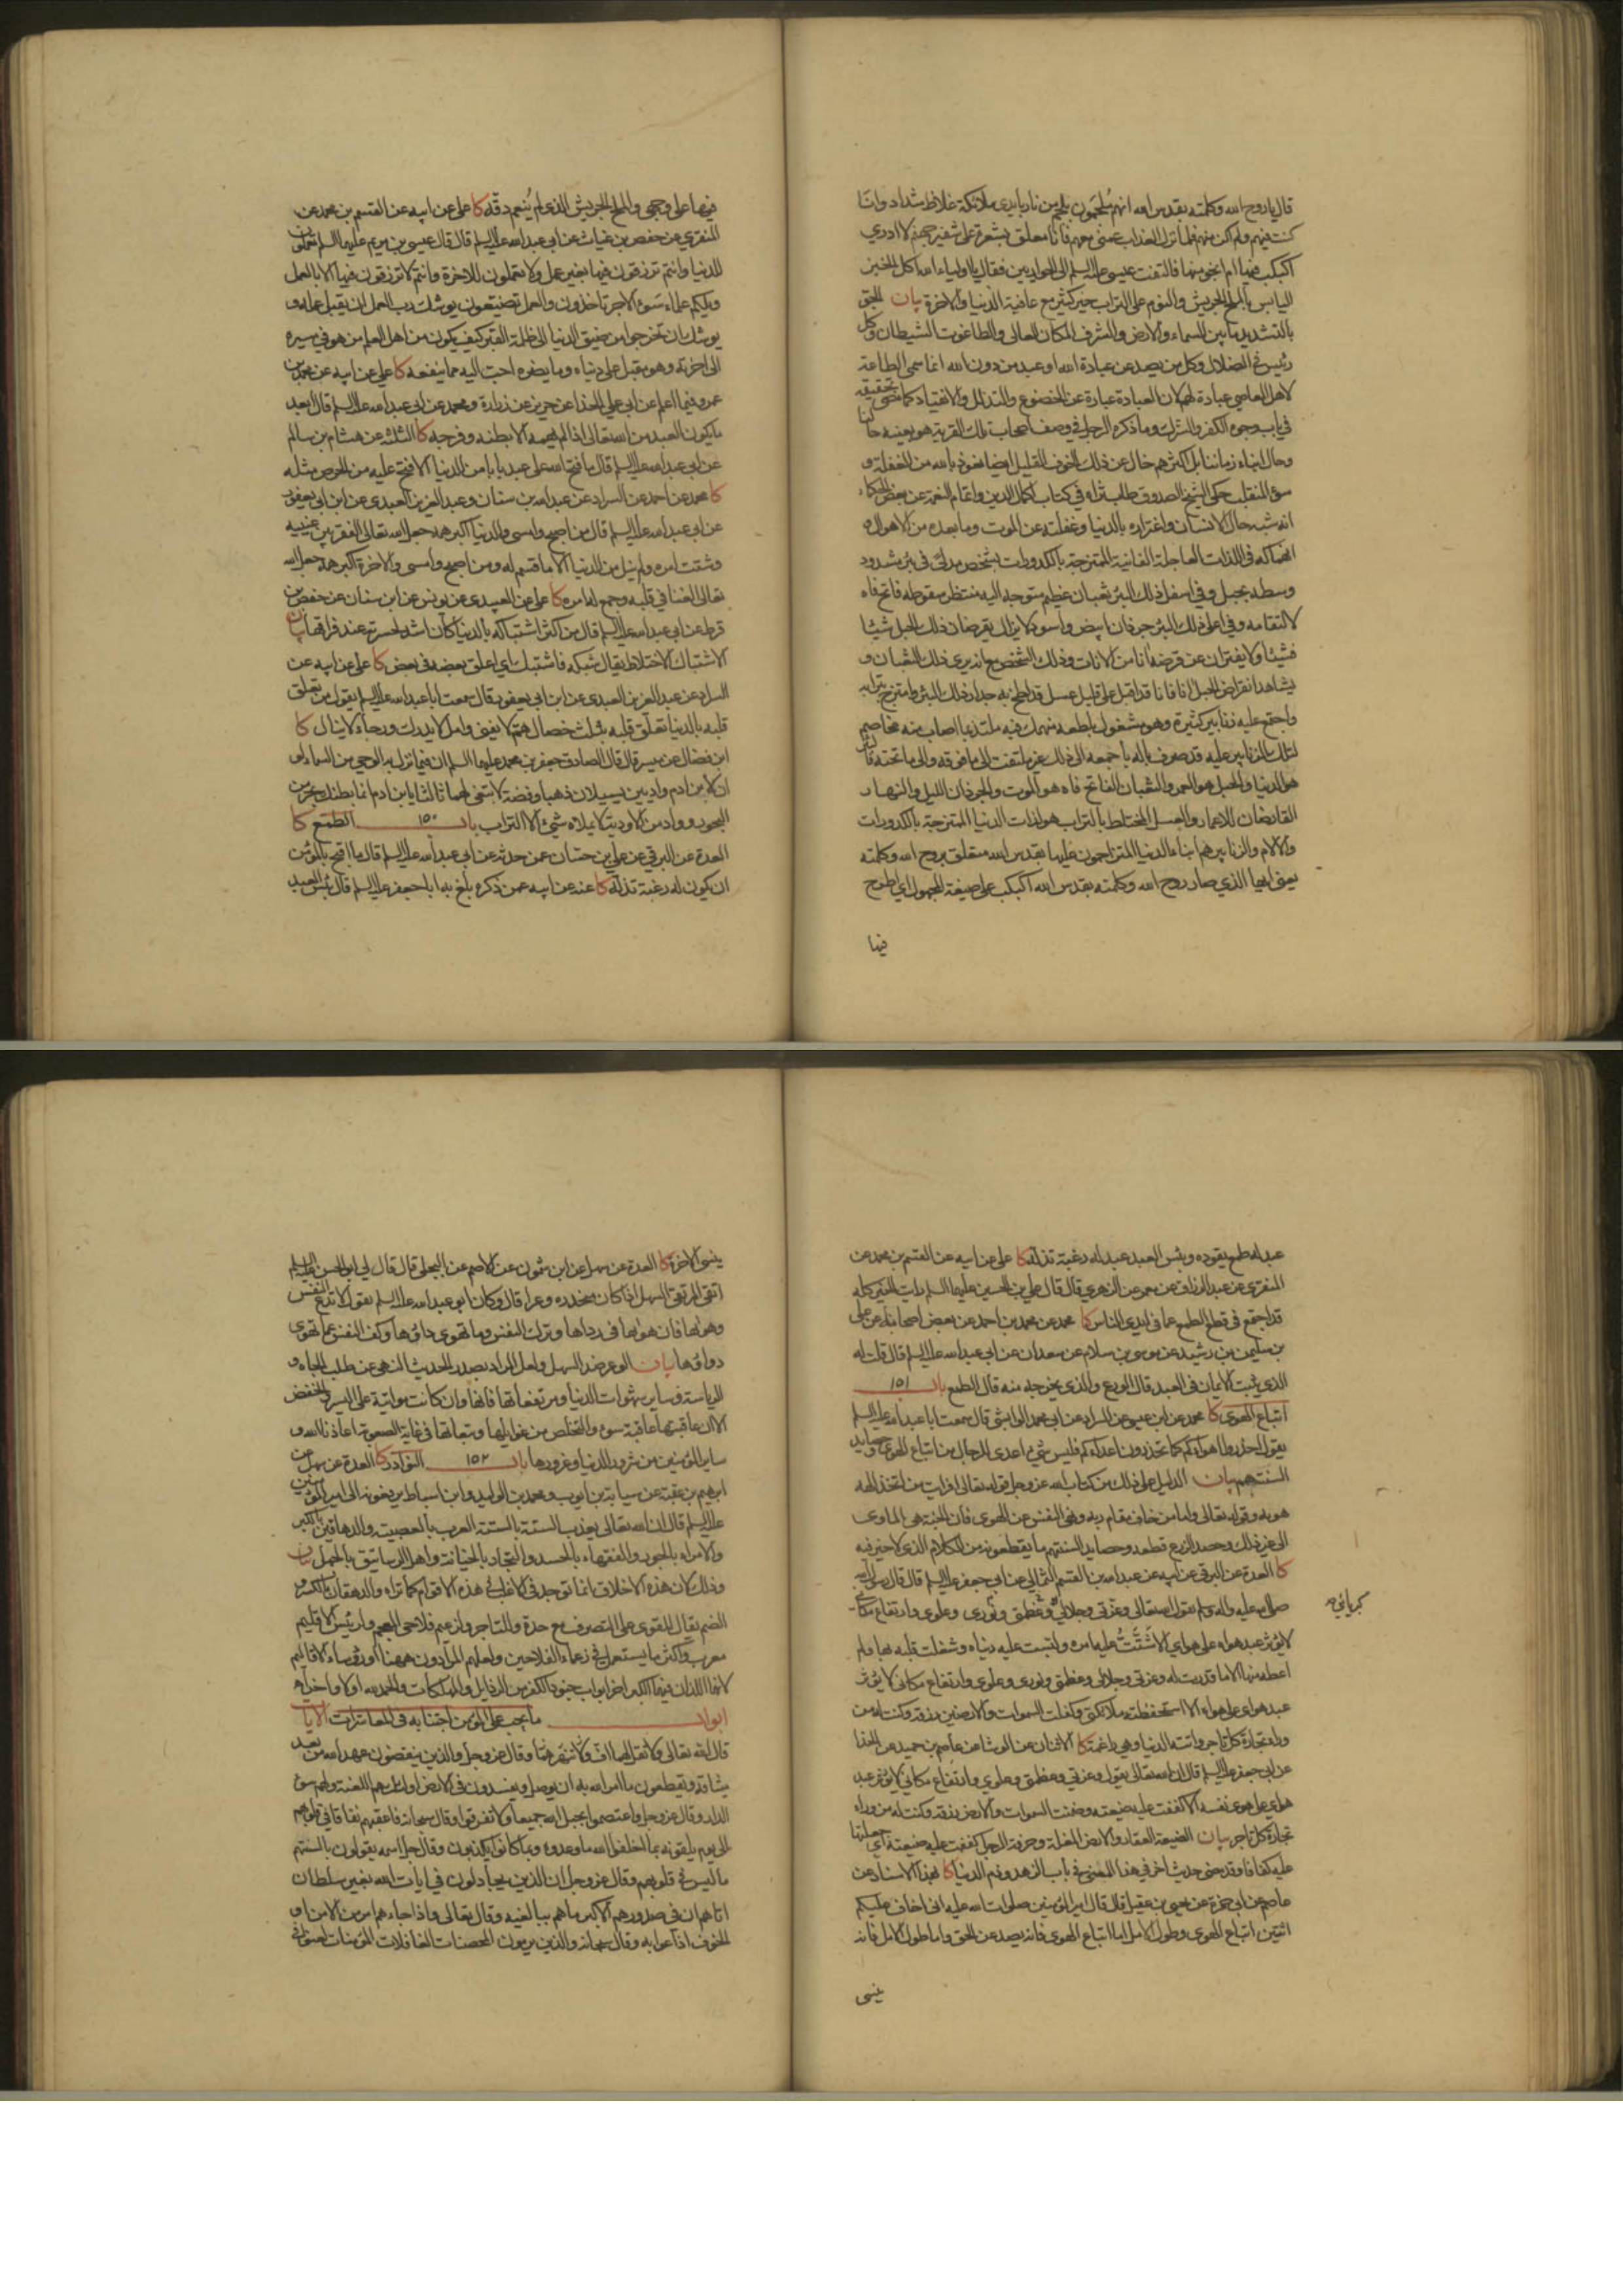 قال يا روح الله وكلمته بقدس الله انهم ملجمون بلجم من نار بايدى ملائكة غلاظ شداد وانى
كنت فيهم ولم اكن منهم فلما نزل العذاب عمنى معهم فانا معلق بشعرة على شفير جهنم لا ادرى
اكبكب فيها ام انجو منها فالتفت عيسى عليه السلم الى الحواريين فقال يا اولياء الله اكل الخبز
اليابس بالملح الجريش والنوم على المزابل خير كثير مع عافية الدنيا والاخرة بيان الجو
بالتشديد ما بين السماء والارض والشرف المكان العالى والطاغوت الشيطان وكل
رئيس فى الضلال وكل من يصد عن عبادة الله او عبد من دون الله انما سمى الطاعة
لاهل المعاصى عبادة لهم لان العبادة عبارة عن الخضوع والتذلل والانقياد كما مضى تحقيقه
فى باب وجوه الكفر والشرك وما ذكره الرجل فى وصف اصحاب تلك القرية هو بعينه حالنا
وحال ابناء زماننا بل اكثرهم خال عن ذلك الخوف القليل ايضا نعوذ بالله من الغفلة و
سوء المنقلب حكى الشيخ الصدوق طاب ثراه فى كتاب اكمال الدين واتمام النعمة عن بعض الحكماء
انه شبه حال الانسان واغتراره بالدنيا وغفلته عن الموت وما بعده من الاهوال و
انهماكه فى اللذات العاجلة الفانية الممتزجة بالكدورات بشخص مدلى فى بئر مشدود
وسطه بحبل وفى اسفل ذلك البئر ثعبان عظيم متوجه اليه منتظر سقوطه فاتح فاه
لالتقامه وفى اعلى ذلك البئر جرذان ابيض واسود لا يزالان يقرضان ذلك الحبل شيئا
فشيئا ولا يفتران عن قرضه انا من الانات وذلك الشخص مع انه يرى ذلك الثعبان و
يشاهد انقراض الحبل انا فانا قد اقبل على قليل عسل قد لطخ به جدار ذلك البئر وامتزج بترابه
واجتمع عليه زنابير كثيرة وهو مشغول بلطعه منهمك فيه ملتذ بما اصاب منه مخاصم
لتلك الزنابير عليه قد صرف باله باجمعه الى ذلك غير ملتفت الى ما فوقه والى ما تحته فالبئر
هو الدنيا والحبل هو العمر والثعبان الفاتح فاه هو الموت والجرذان الليل والنهار
القارضان للاعمار والعسل المختلط بالتراب هو لذات الدنيا الممتزجة بالكدورات
والالام والزنابير هم ابناء الدنيا المتزاحمون عليها بقدس الله متعلق بروح الله وكلمته
يعنى ايها الذى صار روح الله وكلمته بقدس الله اكبكب على صيغة المجهول اى اطرح
فيها
فيها على وجهى والملح الجريش الذى لم ينعم دقه كا على عن ابيه عن القسم بن محمد عن
المنقرى عن حفص بن غياث عن ابى عبد الله عليه السلم قال قال عيسى بن مريم عليهما السلم تعملون
للدنيا وانتم ترزقون فيها بغير عمل ولا تعملون للاخرة وانتم لا ترزقون فيها الا بالعمل
ويلكم علماء سوء الاجر تاخذون والعمل تضيعون يوشك رب العمل ان يقبل عمله و
يوشك ان تخرجوا من ضيق الدنيا الى ظلمة القبر كيف يكون من اهل العلم من هو فى مسيره
الى اخرته وهو مقبل على دنياه وما يضره احب اليه مما ينفعه كا على عن ابيه عن محمد بن
عمرو فيما اعلم عن ابى على الحذاء عن حريز عن زرارة ومحمد عن ابى عبد الله عليه السلم قال ابعد
ما يكون العبد من الله تعالى اذا لم يهمه الا بطنه وفرجه كا الثلثة عن هشام بن سالم
عن ابى عبد الله عليه السلم قال ما فتح الله على عبد بابا من الدنيا الا فتح عليه من الحرص مثله
كا محمد عن احمد عن السراد عن عبد الله بن سنان وعبد العزيز العبدى عن ابن ابى يعفور
عن ابى عبد الله عليه السلم قال من اصبح وامسى والدنيا اكبر همه جعل الله تعالى الفقر بين عينيه
وشتت امره ولم ينل من الدنيا الا ما قسم له ومن اصبح وامسى والاخرة اكبر همه جعل الله
تعالى الغنا فى قلبه وجمع له امره كا على عن العبيدى عن يونس عن ابن سنان عن حفص بن
قرط عن ابى عبد الله عليه السلم قال من كثر اشتباكه بالدنيا كان اشد لحسرته عند فراقها بيان
الاشتباك الاختلاط يقال شبكه فاشتبك اى اعلق بعضه فى بعض كا على عن ابيه عن
السراد عن عبد العزيز العبدى عن ابن ابى يعفور قال سمعت ابا عبد الله عليه السلم يقول من تعلق
قلبه بالدنيا تعلق قلبه بثلث خصال هم لا يغنى وامل لا يدرك ورجاء لا ينال كا
ابن فضال عن ميسر قال قال الصادق جعفر بن محمد عليهما السلم ان فيما نزل به الوحى من السماء لو
ان لابن ادم واديين يسيلان ذهبا وفضة لابتغى لهما ثالثا يا بن ادم انما بطنك بحر من
البحور وواد من الاودية لا يملاه شىء الا التراب باب ١٥٠ الطمع كا
العدة عن البرقى عن على بن حسان عمن حدثه عن ابى عبد الله عليه السلم قال ما اقبح بالمؤمن
ان يكون له رغبة تذله كا عنه عن ابيه عمن ذكره بلغ به ابا جعفر عليه السلم قال بئس العبد
عبد له طمع يقوده وبئس العبد عبد له رغبة تذله كا على عن ابيه عن القسم بن محمد عن
المنقرى عن عبد الرزاق عن معمر عن الزهرى قال قال على بن الحسين عليهما السلم رايت الخير كله
قد اجتمع فى قطع الطمع عما فى ايدى الناس كا محمد عن محمد بن احمد عن بعض اصحابنا عن على
بن سليمن بن رشيد عن موسى بن سلام عن سعدان عن ابى عبد الله عليه السلم قال قلت له
الذى يثبت الايمان فى العبد قال الورع والذى يخرجه منه قال الطمع باب ١٥١
اتباع الهوى كا محمد عن ابن عيسى عن السراد عن ابى محمد الوابشى قال سمعت ابا عبد الله عليه السلم
يقول احذروا اهواءكم كما تحذرون اعداءكم فليس شىء اعدى للرجال من اتباع الهوى وحصايد
السنتهم بيان الدليل على ذلك من كتاب الله عز وجل قوله تعالى افرايت من اتخذ الهه
هويه وقوله تعالى واما من خاف مقام ربه ونهى النفس عن الهوى فان الجنة هى الماوى
الى غير ذلك وحصد الزرع قطعه وحصايد السنتهم ما يقطعونه من الكلام الذى لا خير فيه
كا العدة عن البرقى عن ابيه عن عبد الله بن القسم الثمالى عن ابى جعفر عليه السلم قال قال رسول الله
صلى الله عليه واله وسلم يقول الله تعالى وعزتى وجلالى وعظمتى ونورى وعلوى وارتفاع مكانى
كبريائى
لا يؤثر عبد هواه على هواى الا شتت عليه امره ولبست عليه دنياه وشغلت قلبه بها ولم
اعطه منها الا ما قدرت له وعزتى وجلالى وعظمتى ونورى وعلوى وارتفاع مكانى لا يؤثر
عبد هواى على هواه الا استحفظته ملائكتى وكفلت السموات والارضين رزقه وكنت له من
وراء تجارة كل تاجر واتته الدنيا وهى راغمة كا الاثنان عن الوشاء عن عاصم بن حميد عن الحذاء
عن ابى جعفر عليه السلم قال ان الله تعالى يقول وعزتى وعظمتى وعلوى وارتفاع مكانى لا يؤثر عبد
هواى على هوى نفسه الا كففت عليه ضيعته وضمنت السموات والارض رزقه وكنت له من وراء
تجارة كل تاجر بيان الضيعة العقار والارض المغلة وحرفة الرجل كففت عليه ضيعته اى جعلتها
عليه كفافا وقد مضى حديث اخر فى هذا المعنى فى باب الزهد وذم الدنيا كا بهذا الاسناد عن
عاصم عن ابى حمزة عن يحيى بن عقيل قال قال امير المؤمنين صلوات الله عليه انى اخاف عليكم
اثنتين اتباع الهوى وطول الامل اما اتباع الهوى فانه يصد عن الحق واما طول الامل فانه
ينسى
ينسى الاخرة كا العدة عن سهل عن ابن شمون عن الاصم عن البجلى قال قال لى ابو الحسن عليه السلم
اتق المرتقى السهل اذا كان منحدره وعرا قال وكان ابو عبد الله عليه السلم يقول لا تدع النفس
وهواها فان هواها فى رداها وترك النفس وما تهوى داؤها وكف النفس عما تهوى
دواؤها بيان الوعر ضد السهل ولعل المراد بصدر الحديث النهى عن طلب الجاه و
الرياسة وساير شهوات الدنيا ومرتفعاتها فانها وان كانت مواتية على اليسر والخفض
الا ان عاقبتها عاقبة سوء والتخلص من غوايلها وتبعاتها فى غاية الصعوبة اعاذنا الله و
ساير المؤمنين من شرور الدنيا وغرورها باب ١٥٢ النوادر كا العدة عن سهل عن
ابرهيم بن عقبة عن سيابة بن ايوب ومحمد بن الوليد وابن اسباط يرفعونه الى امير المؤمنين
عليه السلم قال ان الله تعالى يعذب الستة بالستة العرب بالعصبية والدهاقين بالكبر
والامراء بالجور والفقهاء بالحسد والتجار بالخيانة واهل الرساتيق بالجهل بيان
وذلك لان هذه الاخلاق انما توجد فى الاغلب فى هذه الاقوام كما تراه والدهقان بالكسر و
الضم يقال للقوى على التصرف مع حدة والتاجر وزعيم فلاحى العجم ورئيس الاقليم
معرب واكثر ما يستعمل فى زعماء الفلاحين ولعلهم المرادون ههنا او رؤساء الاقاليم
لانهما اللذان فيهما الكبر اخر ابواب جنود الكفر من الرذايل والمهلكات والحمد لله اولا واخرا
ابواب ما يجب على المؤمن اجتنابه فى المعاشرات الايات
قال الله تعالى ولا تقل لهما اف ولا تنهرهما وقال عز وجل والذين ينقضون عهد الله من بعد
ميثاقه ويقطعون ما امر الله به ان يوصل ويفسدون فى الارض اولئك لهم اللعنة ولهم سوء
الدار وقال عز وجل واعتصموا بحبل الله جميعا ولا تفرقوا وقال سبحانه فاعقبهم نفاقا فى قلوبهم
الى يوم يلقونه بما اخلفوا الله ما وعدوه وبما كانوا يكذبون وقال جل اسمه يقولون بالسنتهم
ما ليس فى قلوبهم وقال عز وجل ان الذين يجادلون فى ايات الله بغير سلطان
اتاهم ان فى صدورهم الا كبر ما هم ببالغيه وقال تعالى واذا جاءهم امر من الامن او
الخوف اذاعوا به وقال سبحانه والذين يرمون المحصنات الغافلات المؤمنات لعنوا فى